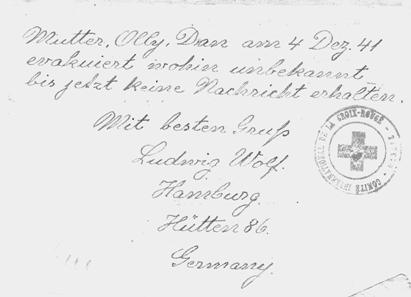 Mutter, Olly, Dan am 4 Dez. 41
evakuiert wohin unbekannt
bis jetzt keine Nachricht erhalten.
Mit besten Gruß
Ludwig Wolf.
Hamburg.
Hütten 86.
Germany.
COMITÉ INTERNATIONAL DE LA CROIX-ROUGE